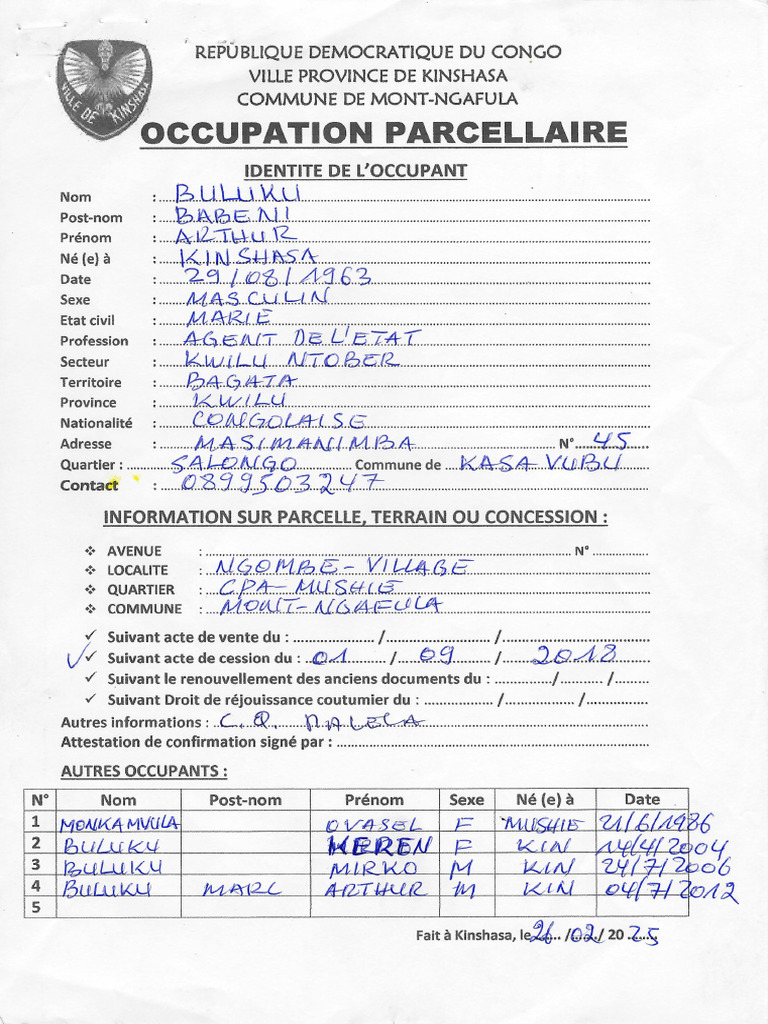 VILLE DE KINSHASA
REPUBLIQUE DEMOCRATIQUE DU CONGO
VILLE PROVINCE DE KINSHASA
COMMUNE DE MONT-NGAFULA
OCCUPATION PARCELLAIRE
IDENTITE DE L'OCCUPANT
Nom : BULUKU
Post-nom : BABENI
Prénom : ARTHUR
Né (e) à : KINSHASA
Date : 29/08/1963
Sexe : MASCULIN
Etat civil : MARIE
Profession : AGENT DE L'ETAT
Secteur : KWILU NTOBER
Territoire : BAGATA
Province : KWILU
Nationalité : CONGOLAISE
Adresse : MASIMANIMBA N° 45
Quartier : SALONGO Commune de KASA VUBU
Contact : 0899503247
INFORMATION SUR PARCELLE, TERRAIN OU CONCESSION :
❖ AVENUE : N°
❖ LOCALITE : NGOMBE-VILLAGE
❖ QUARTIER : CPA-MUSHIE
❖ COMMUNE : MONT-NGAFULA
✓ Suivant acte de vente du : / /
✓ ✓ Suivant acte de cession du : 01 / 09 / 2018
✓ Suivant le renouvellement des anciens documents du : / /
✓ Suivant Droit de réjouissance coutumier du : / /
Autres informations : C.Q. MALELA
Attestation de confirmation signé par :
AUTRES OCCUPANTS :
N° Nom Post-nom Prénom Sexe Né (e) à Date
1 MONKAMVULA OVASEL F MUSHIE 21/6/1986
2 BULUKU KEREN F KIN 14/4/2004
3 BULUKU MIRKO M KIN 24/7/2006
4 BULUKU MARC ARTHUR M KIN 04/7/2012
5
Fait à Kinshasa, le 26 / 02 / 20 25